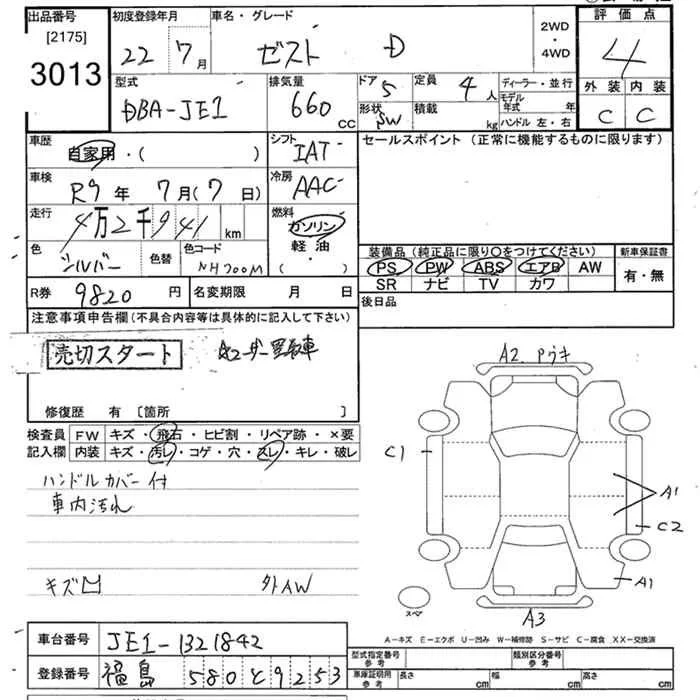 出品番号 初度登録年月 車名・グレード 2WD・4WD 評価点
[2175]
3013 22 7月 ゼスト D 4
型式 排気量 ドア 定員 ディーラー・並行 外装 内装
DBA-JE1 660 cc 5 4人 モデル年式 年 C C
形状 SW 積載 kg ハンドル 左・右
車歴 自家用・( ) シフト IAT セールスポイント (正常に機能するものに限ります)
車検 R9年 7月(7日) 冷房 AAC
走行 4万2千941 km 燃料 ガソリン・軽油・( )
色 シルバー 色替 色コード NH700M
装備品 (純正品に限り○をつけてください) 新車保証書
PS PW ABS エアB AW 有・無
SR ナビ TV カワ
R券 9820円 名変期限 月 日 後日品
注意事項申告欄(不具合内容等は具体的に記入して下さい)
売切スタート
修復歴 有 [箇所 ]
検査員記入欄 FW キズ・飛石・ヒビ割・リペア跡・×要
内装 キズ・汚レ・コゲ・穴・スレ・キレ・破レ
ハンドルカバー付
車内汚れ
キズ凹 外AW
A2 Pウキ
C1
A1
C2
A1
スペア
A3
A-キズ E-エクボ U-凹み W-補修跡 S-サビ C-腐食 XX-交換済
車台番号 JE1-1321842
登録番号 福島 580 と 9253
型式指定番号 参考 類別区分番号 参考
車庫証明用 参考 長さ cm 幅 cm 高さ cm